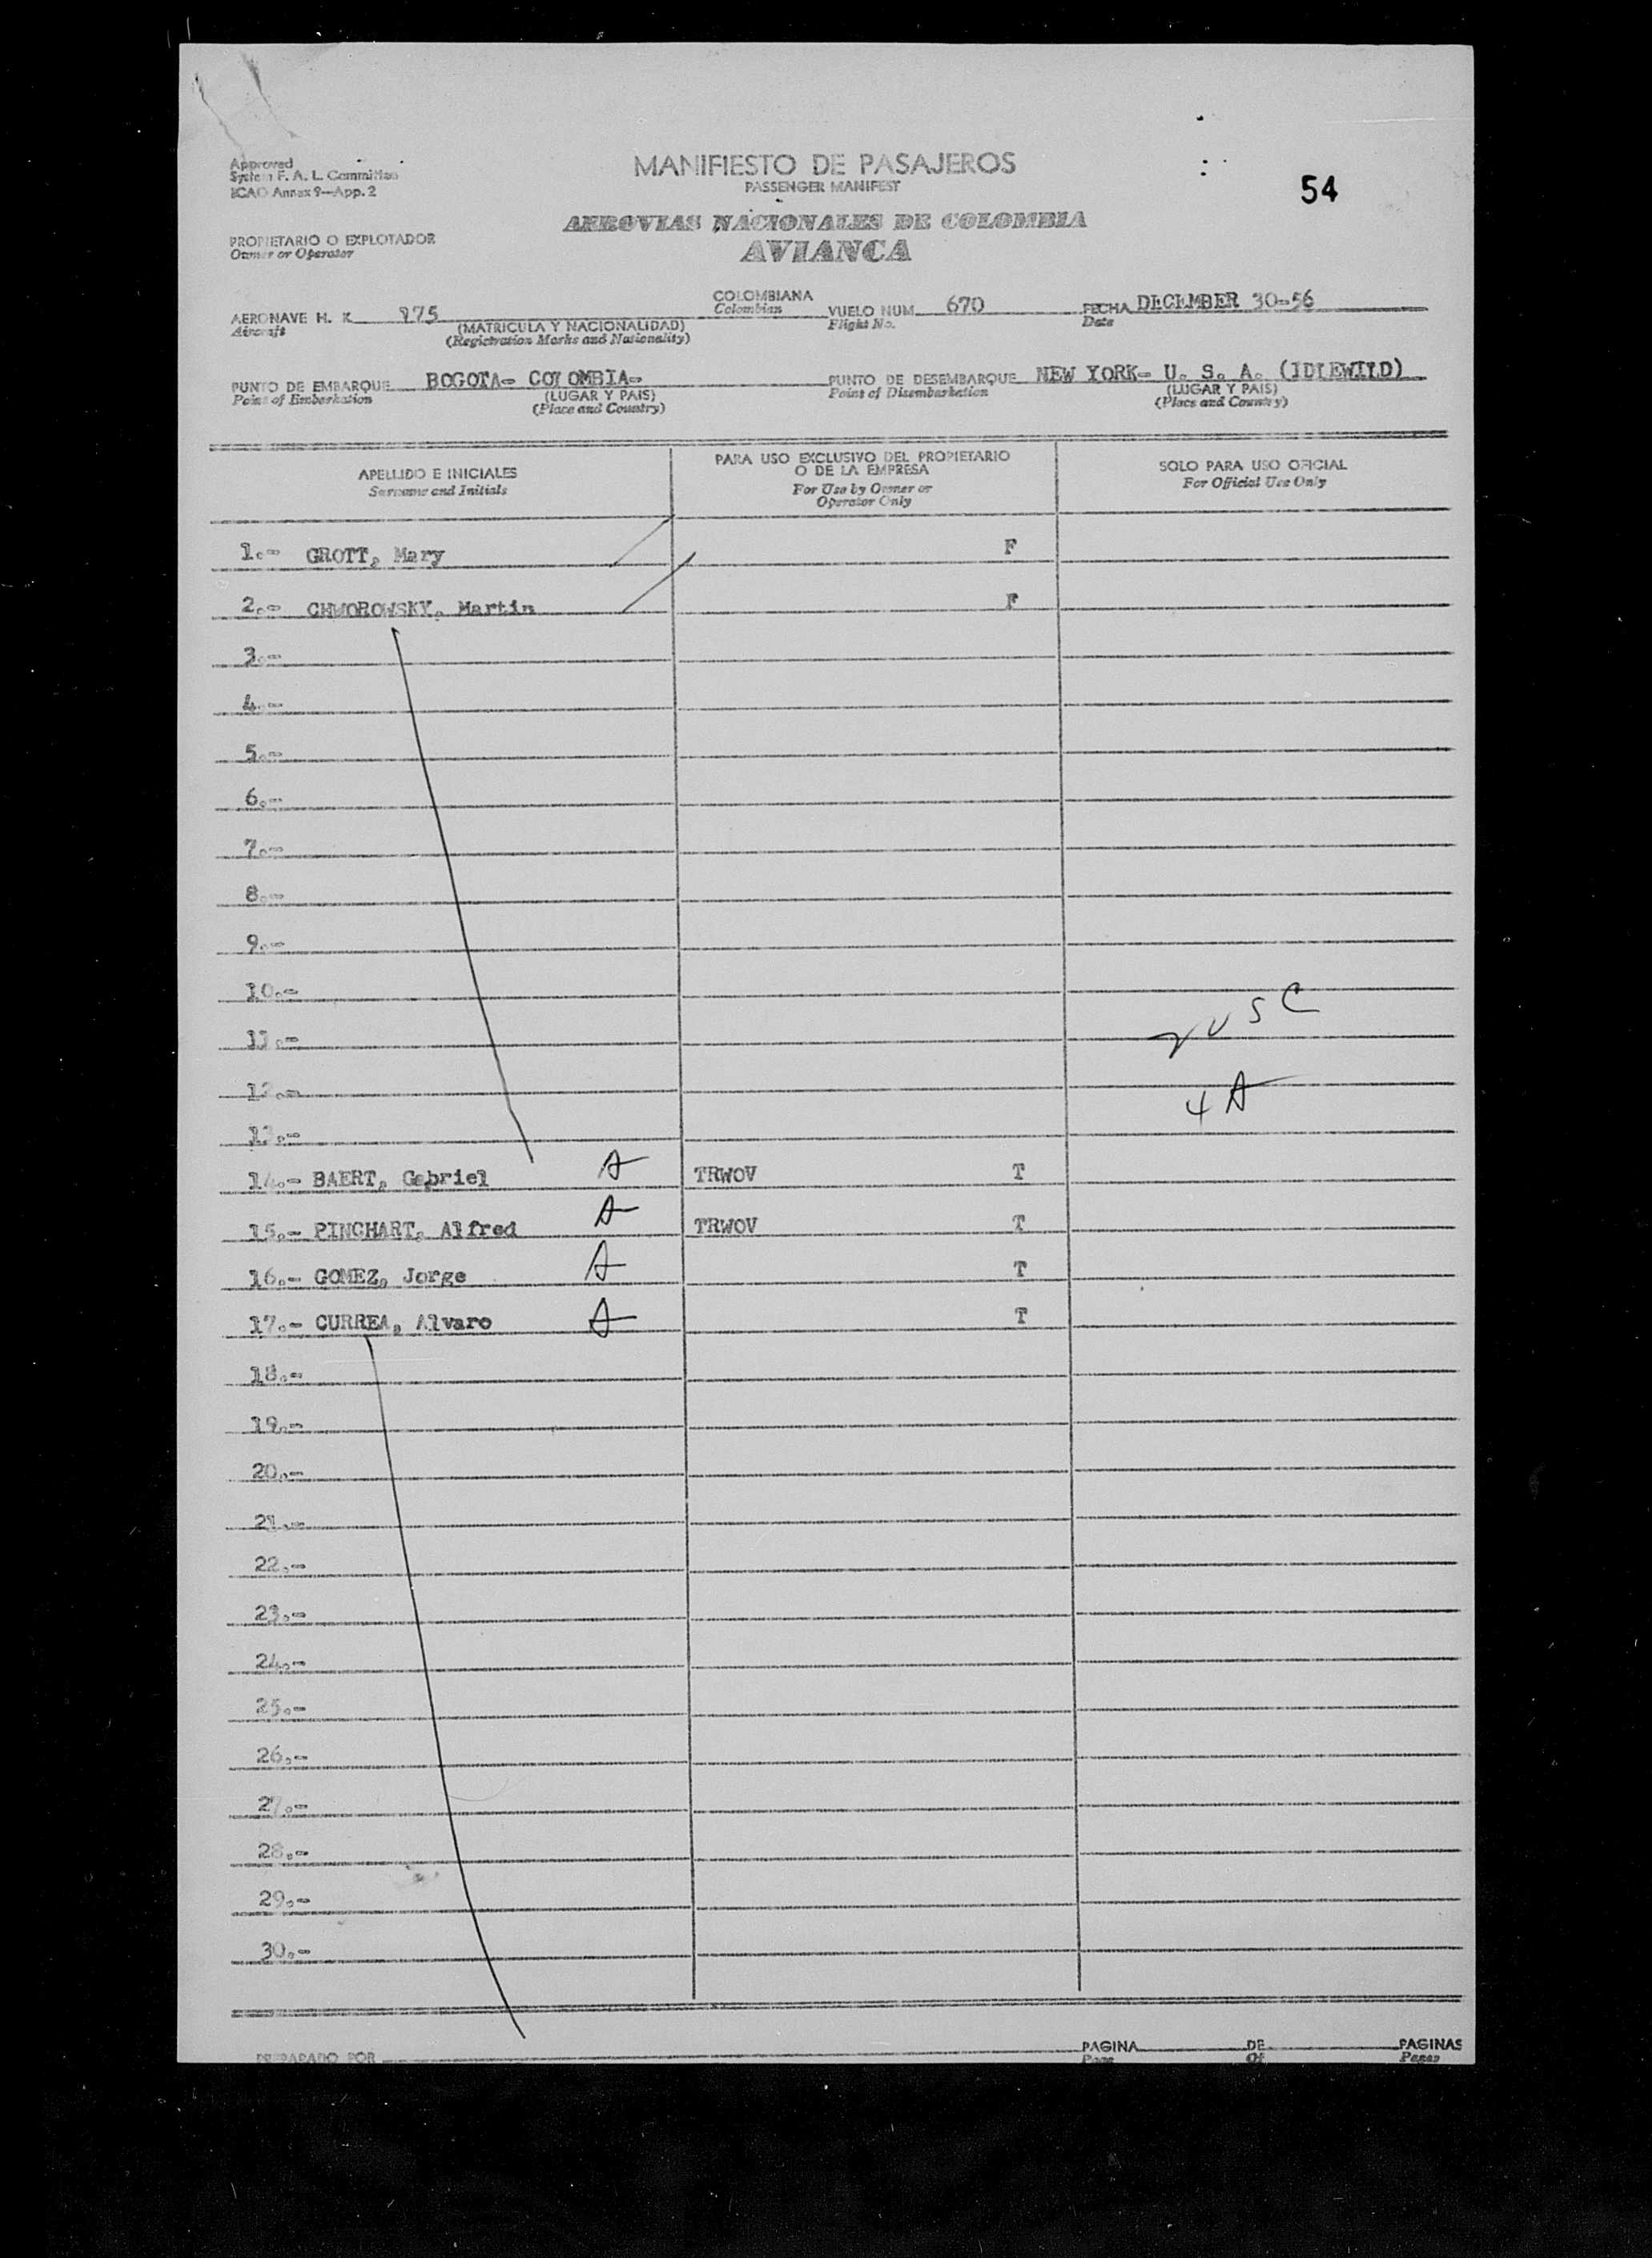 Approved
System F. A. L. Committee
ICAO Annex 9—App. 2
MANIFIESTO DE PASAJEROS
PASSENGER MANIFEST
54
AEROVIAS NACIONALES DE COLOMBIA
AVIANCA
PROPIETARIO O EXPLOTADOR
Owner or Operator
AERONAVE H. K. 175 COLOMBIANA VUELO NUM. 670 FECHA DECEMBER 30-56
Aircraft (MATRICULA Y NACIONALIDAD) Colombian Flight No. Date
(Registration Marks and Nationality)
PUNTO DE EMBARQUE BOGOTA- COLOMBIA- PUNTO DE DESEMBARQUE NEW YORK- U. S. A. (IDLEWILD)
Point of Embarkation (LUGAR Y PAIS) Point of Disembarkation (LUGAR Y PAIS)
(Place and Country) (Place and Country)
APELLIDO E INICIALES
Surname and Initials
PARA USO EXCLUSIVO DEL PROPIETARIO
O DE LA EMPRESA
For Use by Owner or
Operator Only
SOLO PARA USO OFICIAL
For Official Use Only
1.- GROTT, Mary F
2.- CHWOROWSKY, Martin F
3.-
4.-
5.-
6.-
7.-
8.-
9.-
10.-
2 USC
11.-
12.-
4 A
13.-
14.- BAERT, Gabriel A TRWOV T
15.- PINCHART, Alfred A TRWOV T
16.- GOMEZ, Jorge A T
17.- CURREA, Alvaro A T
18.-
19.-
20.-
21.-
22.-
23.-
24.-
25.-
26.-
27.-
28.-
29.-
30.-
PREPARADO POR PAGINA DE PAGINAS
Page Of Pages